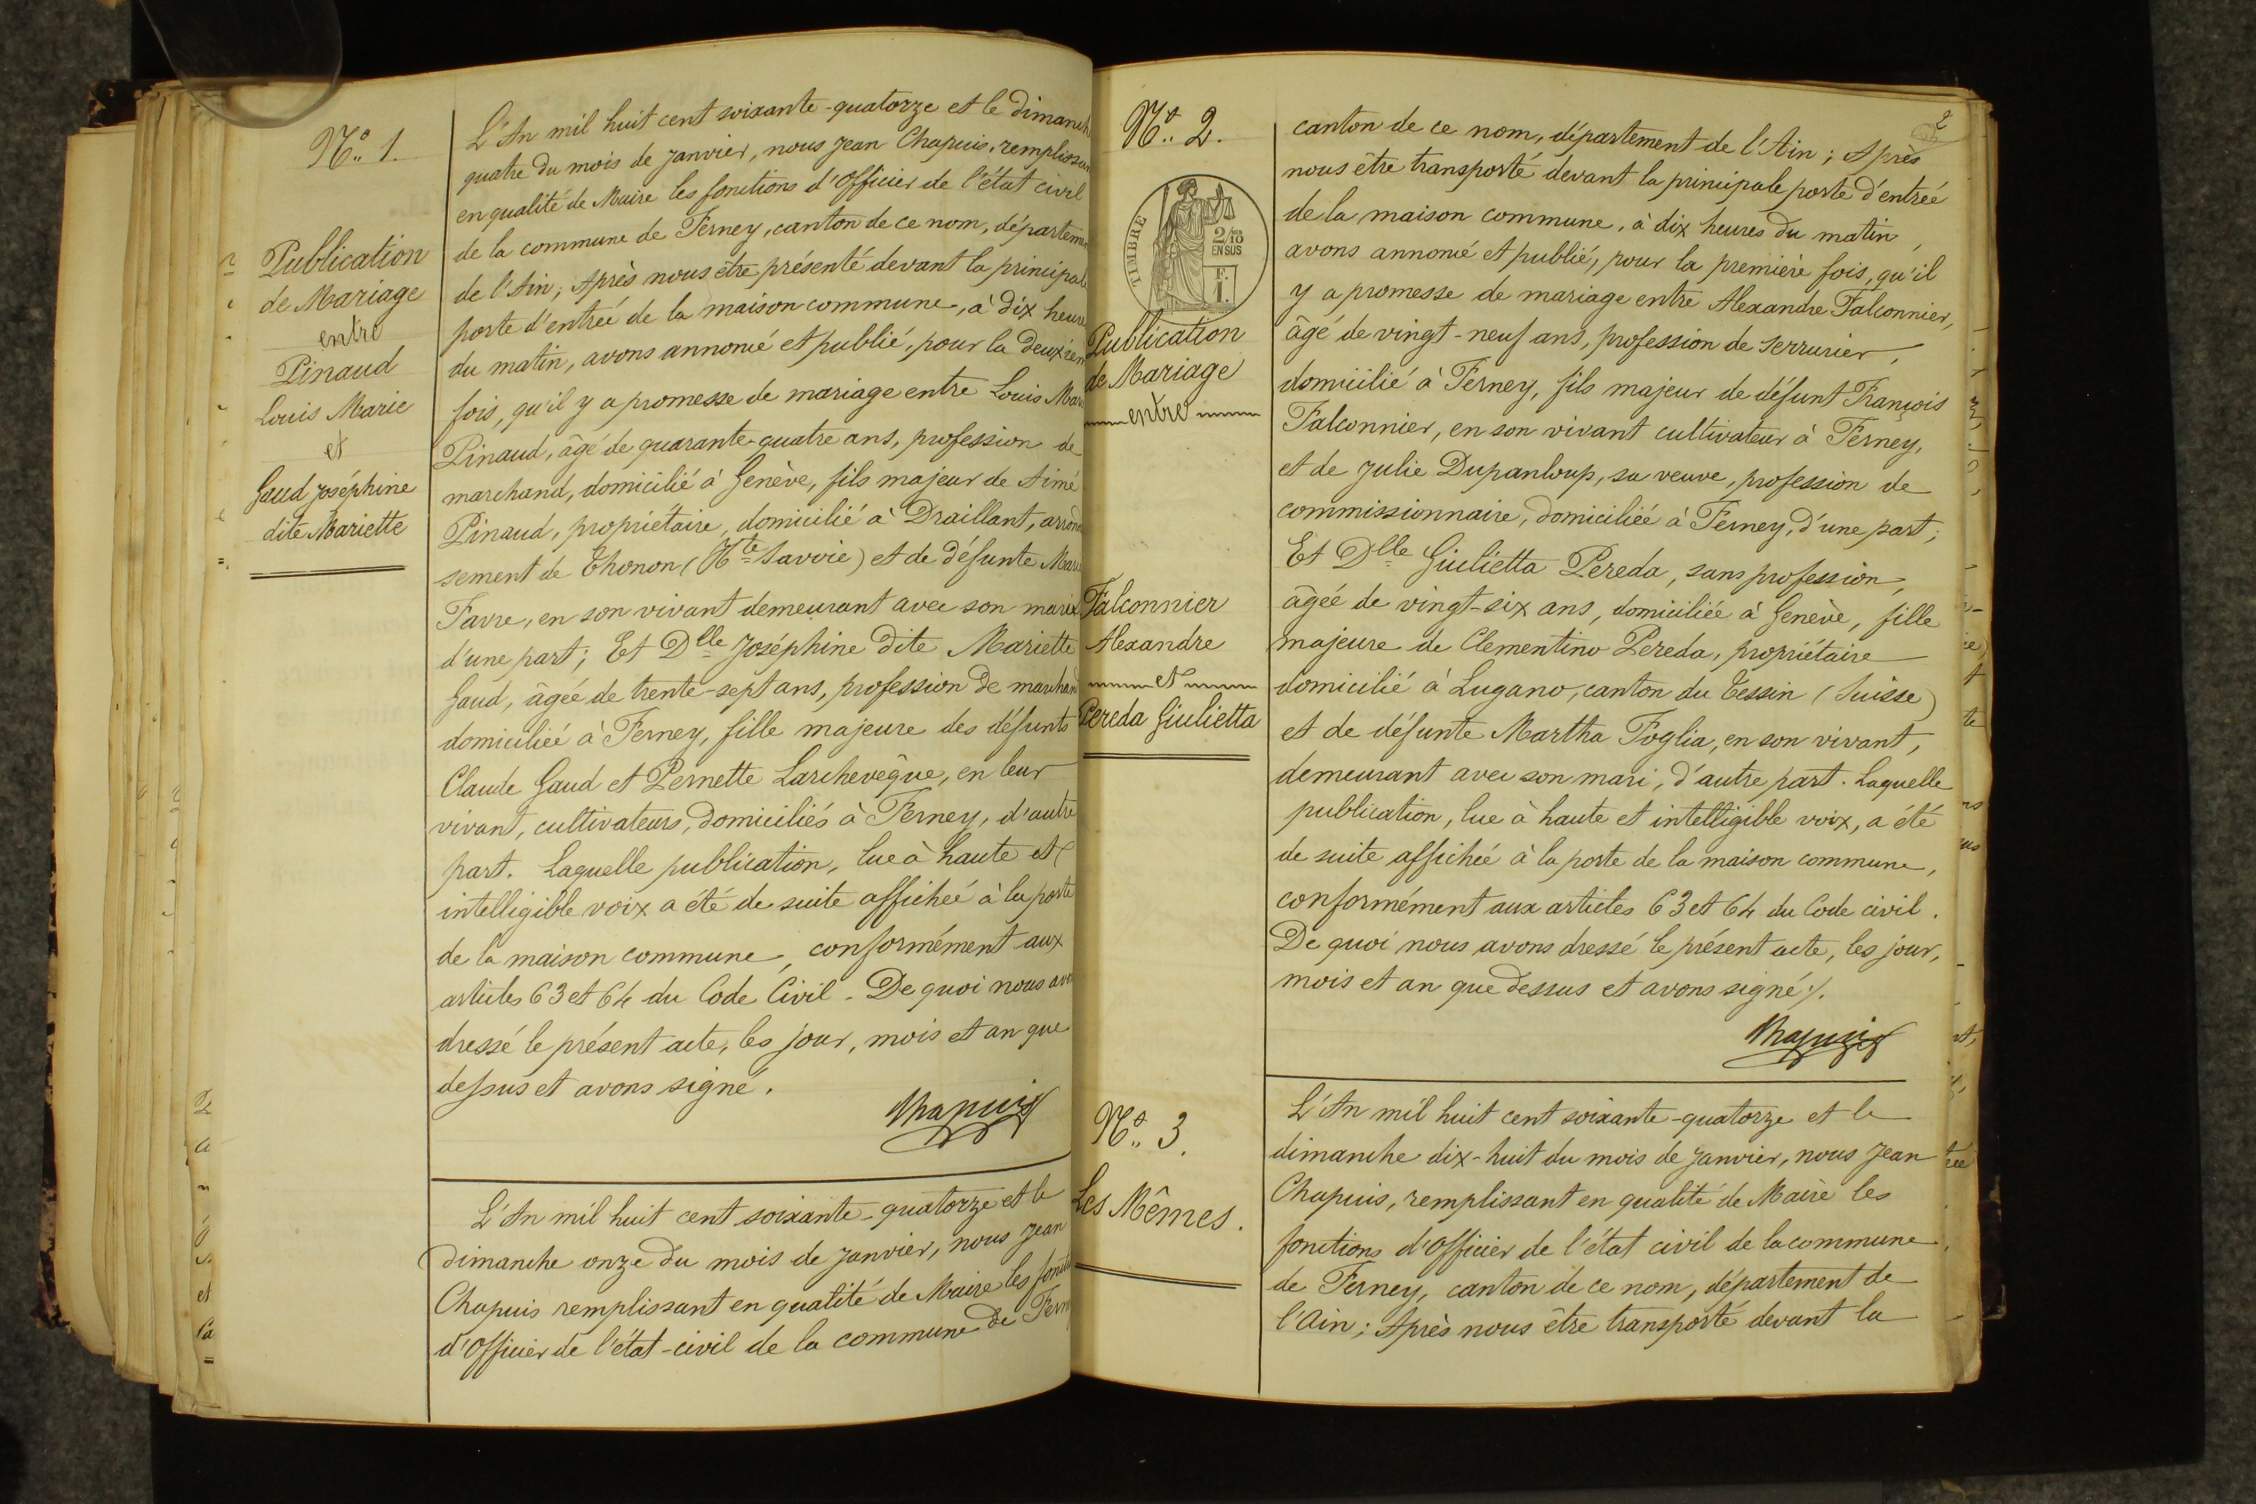 N° 1.
Publication
de Mariage
entre
Pinaud
Louis Marie
et
Gaud Joséphine
dite Mariette
L'An mil huit cent soixante-quatorze et le dimanch
quatre du mois de Janvier, nous Jean Chapuis, remplissan
en qualité de Maire les fonctions d'Officier de l'état civil
de la commune de Ferney, canton de ce nom, départeme
de l'Ain; Après nous être présenté devant la principal
porte d'entrée de la maison commune, à dix heure
du matin, avons annoncé et publié, pour la deuxièm
fois, qu'il y a promesse de mariage entre Louis Mar
Pinaud, âgé de quarante-quatre ans, profession de
marchand, domicilié à Genève, fils majeur de Aimé
Pinaud, propriétaire, domicilié à Draillant, arrond
sement de Thonon (Hte Savoie) et de défunte Mar
Favre, en son vivant demeurant avec son mari
d'une part; Et Dlle Joséphine dite Mariette
Gaud, âgée de trente-sept ans, profession de marchand
domiciliée à Ferney, fille majeure des défunts
Claude Gaud et Pernette Larchevêque, en leur
vivant, cultivateurs, domiciliés à Ferney, d'autre
part. Laquelle publication, lue à haute et
intelligible voix a été de suite affichée à la porte
de la maison commune, conformément aux
articles 63 et 64 du Code Civil - De quoi nous avo
dressé le présent acte, les jour, mois et an que
dessus et avons signé.
Chapuis
L'An mil huit cent soixante-quatorze et le
dimanche onze du mois de Janvier, nous Jean
Chapuis remplissant en qualité de Maire les foncti
d'Officier de l'état-civil de la commune de Fern
2
N° 2.
TIMBRE
2/10
EN SUS
F.
1.
Publication
de Mariage
entre
Falconnier
Alexandre
et
Pereda Giulietta
canton de ce nom, département de l'Ain; Après
nous être transporté devant la principale porte d'entrée
de la maison commune, à dix heures du matin,
avons annoncé et publié, pour la première fois, qu'il
y a promesse de mariage entre Alexandre Falconnier,
âgé de vingt-neuf ans, profession de serrurier,
domicilié à Ferney, fils majeur de défunt François
Falconnier, en son vivant cultivateur à Ferney,
et de Julie Dupanloup, sa veuve, profession de
commissionnaire, domiciliée à Ferney, d'une part;
Et Dlle Giulietta Pereda, sans profession,
âgée de vingt-six ans, domiciliée à Genève, fille
majeure de Clementino Pereda, propriétaire
domicilié à Lugano, canton du Tessin (Suisse)
et de défunte Martha Foglia, en son vivant,
demeurant avec son mari, d'autre part. Laquelle
publication, lue à haute et intelligible voix, a été
de suite affichée à la porte de la maison commune,
conformément aux articles 63 et 64 du Code civil.
De quoi nous avons dressé le présent acte, les jour,
mois et an que dessus et avons signé ./.
Chapuis
N° 3.
Les Mêmes.
L'An mil huit cent soixante-quatorze et le
dimanche dix-huit du mois de Janvier, nous Jean
Chapuis, remplissant en qualité de Maire les
fonctions d'Officier de l'état civil de la commune
de Ferney, canton de ce nom, département de
l'Ain; Après nous être transporté devant la